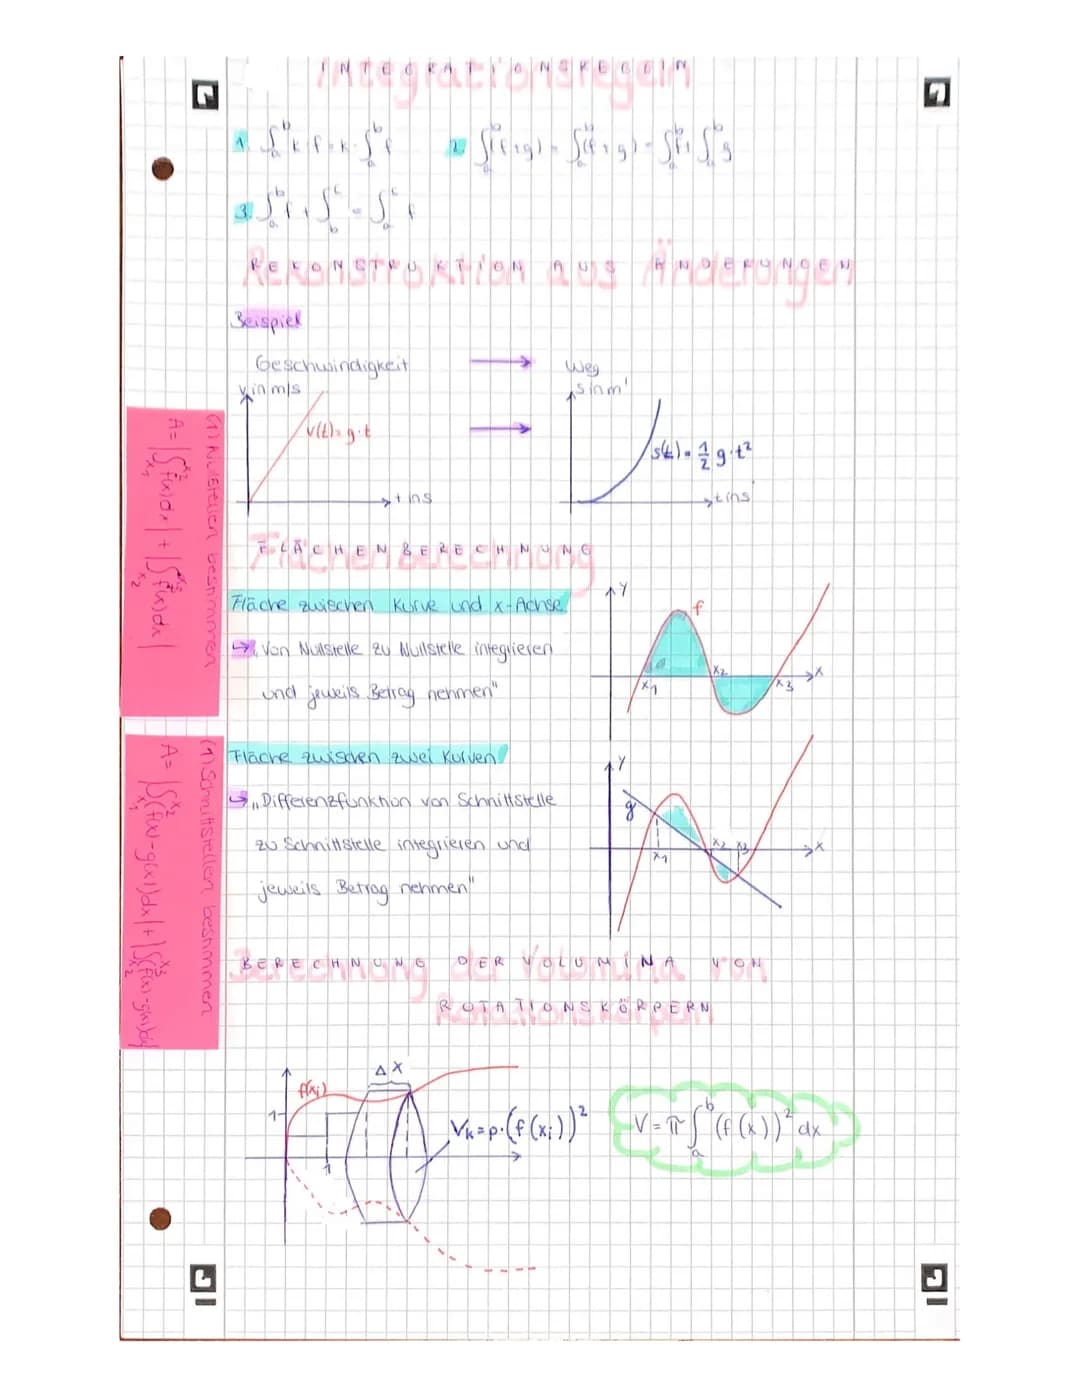 INTEGRATIONSREGELN
1. ∫ₐᵇ k·f = k·∫ₐᵇ f
2. ∫ₐᵇ (f+g) = ∫ₐᵇ (f+g) = ∫ₐᵇ f + ∫ₐᵇ g
3. ∫ₐᵇ f + ∫_b^c = ∫ₐᶜ f
REKONSTRUKTION AUS ÄNDERUNGEN
Beispiel
Geschwindigkeit
Weg
v in m/s
s in m
v(t)=g·t
s(t)=1/2 g·t²
t in s
t in s
FLÄCHENBERECHNUNG
Fläche zwischen Kurve und x-Achse
↳ „Von Nullstelle zu Nullstelle integrieren
und jeweils Betrag nehmen"
y
f
x₁
x₂
x₃
x
(1) Nullstellen bestimmen
A= |∫_{x₁}^{x₂} f(x)dx| + |∫_{x₂}^{x₃} f(x)dx|
Fläche zwischen zwei Kurven
↳ „Differenzfunktion von Schnittstelle
zu Schnittstelle integrieren und
jeweils Betrag nehmen"
y
g
x₁
x₂
x₃
x
(1) Schnittstellen bestimmen
A= |∫_{x₁}^{x₂} (f(x)-g(x))dx| + |∫_{x₂}^{x₃} (f(x)-g(x))dx|
BERECHNUNG DER VOLUMINA VON
ROTATIONSKÖRPERN
f(xᵢ)
Δx
1
1
Vₖ=p·(f(xᵢ))²
V=π∫ₐᵇ (f(x))² dx